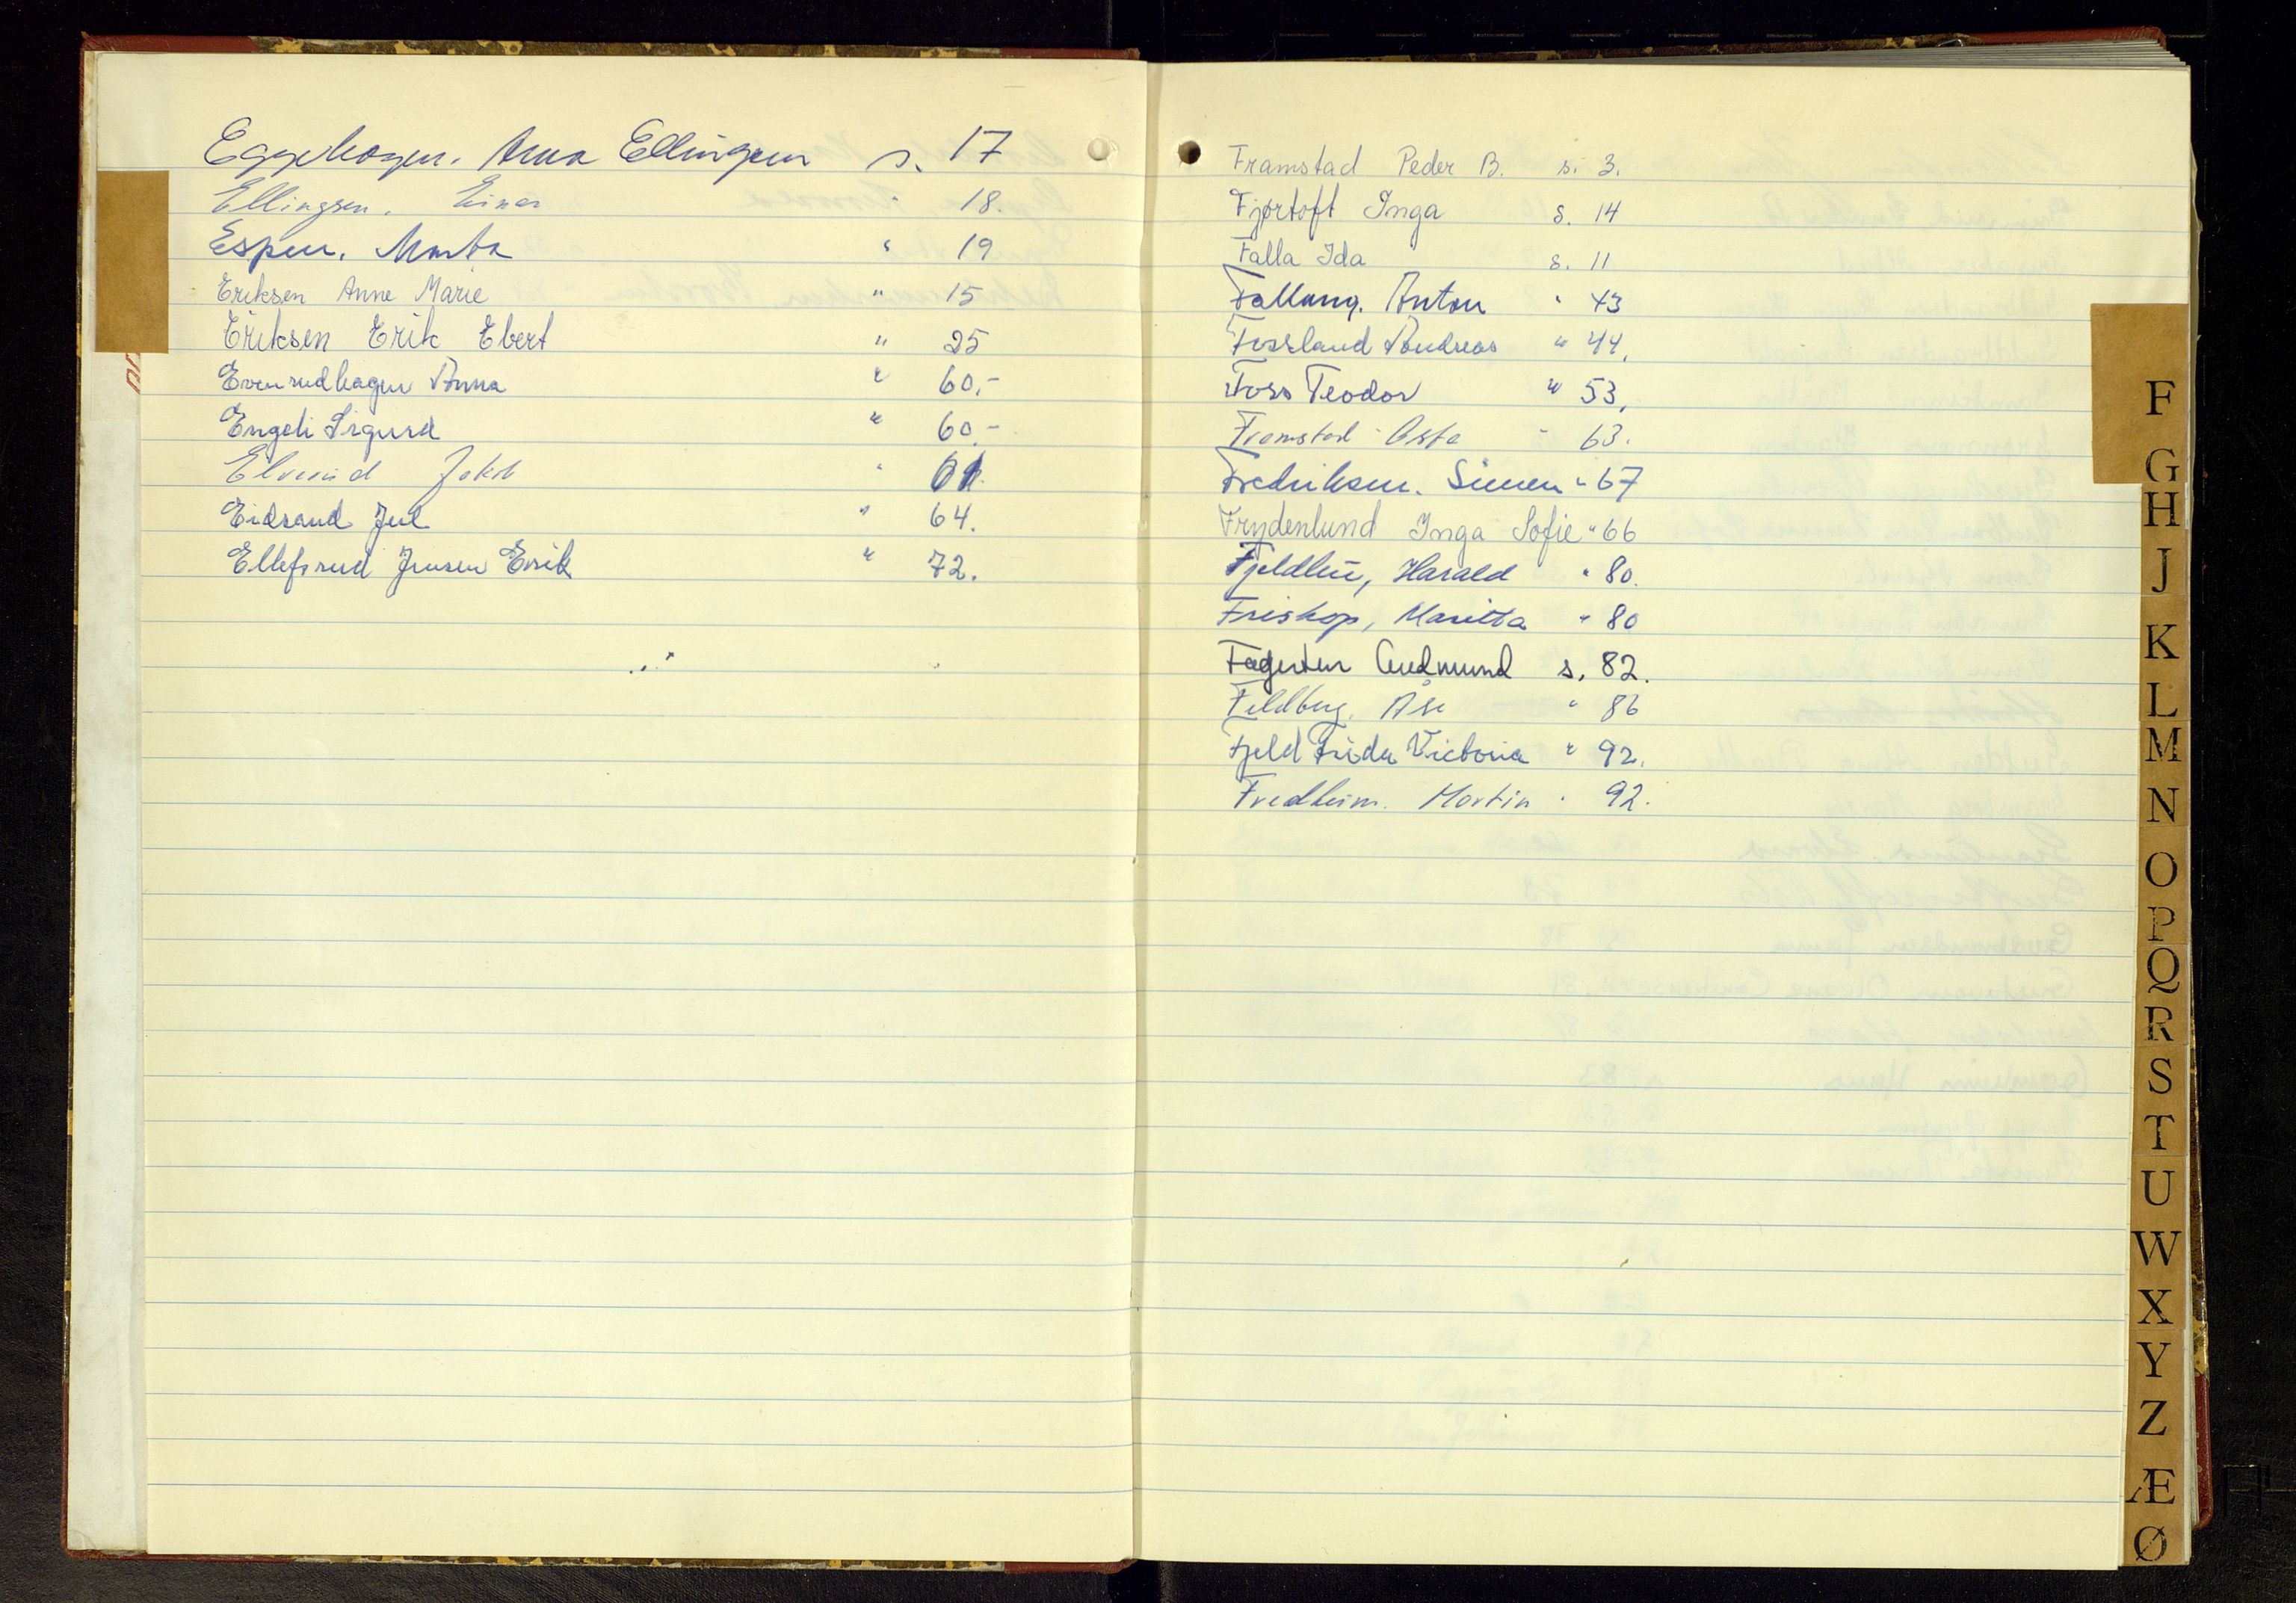 Eggehagen. Anna Ellingsen s. 17
Ellingsen. Einar " 18.
Espen. Marta " 19
Eriksen Anne Marie " 15
Eriksen Erik Ebert " 25
Evenrudhagen Anna " 60.-
Engeli Sigurd " 60.-
Elvrud Jakob "
Eidsand Jul " 64.
Ellefsrud Jensen Erik " 72.
Framstad Peder B. s. 3.
Fjørtoft Inga s. 14
Falla Ida s. 11
Fallang. Anton " 43
Fossland Andreas " 44.
Foss Teodor " 53.
Framstad Asta " 63.
Fredriksen. Simen " 67
Frydenlund Inga Sofie " 66
Fjeldlie, Harald " 80.
Friskop, Maritta " 80
Fagerlien Gudmund s. 82.
Feldberg. Åse " 86
Fjeld Frida Victoria " 92.
Fredheim. Martin " 92.
F
G
H
J
K
L
M
N
O
P
Q
R
S
T
U
W
X
Y
Z
Æ
Ø